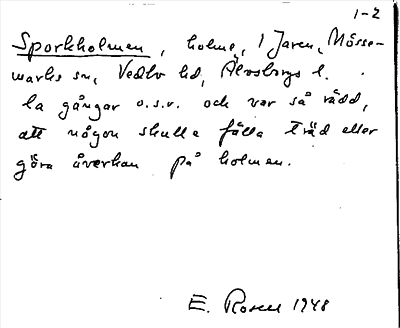 1-2
Sporkholmen, holme, i Jaren, Mösse-
warks sn, Vedbo hd, Älvsborgs l.
la gångar o.s.v. och var så rädd,
att någon skulle fälla träd eller
göra åverkan på holmen.
E. Rosen 1948